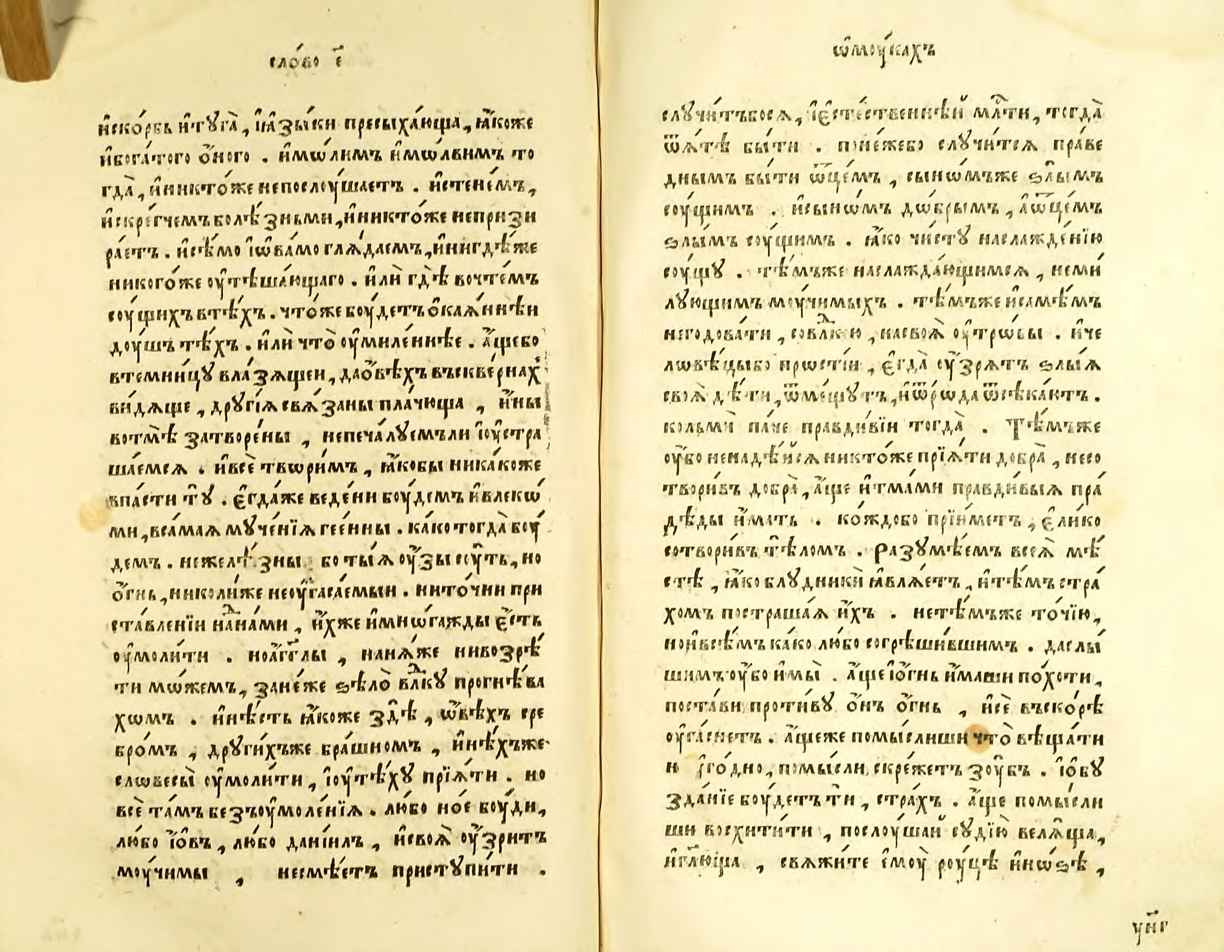 сло́во є҃
и҆ско́рбь и҆туга̀, і҆ꙗ҆зы́ки пресыха́юща, ꙗ҆́коже
и҆бога́того ѻ҆́ного . и҆мѡ́лимъ и҆мѡ́лвимъ то
гда̀, и҆никто́же непослоу́шаетъ . и҆стене́мъ,
и҆скре́гчемъ болѣ́зньми, и҆никто́же непризи
ра́етъ . и҆сѣ́мо і҆ѡ҆ва́мо глѧ́даемъ, и҆нигдѣ́же
никого́же ᲂу҆тѣша́ющаго . и҆лѝ гдѣ̀ вочте́мъ
соу́щихъ втѣ́хъ . что́же боу́детъ ѻ҆каѧ́ннѣи
доу́шъ тѣ́хъ . и҆лѝ что̀ ᲂу҆миле́ннѣе . а҆́щебо
втемни́цу вла́зѧщеи, даѻ҆́вѣхъ въскве́рнахъ
ви́дѧще, други́ѧ свѧ́заны пла́чюща, и҆́ны
вотмѣ̀ затворе́ны, непеча́луемъли і҆ᲂу҆стра
ша́емсѧ . и҆всѐ твѡри́мъ, ꙗ҆́кобы ника́коже
впа́сти тꙋ̀ . є҆гда́же веде́ни боу́демъ и҆влеко́
ми, вса́маѧ муче́нїѧ гее́нны . ка́ко тогда̀ боу́
демъ . нежелѣ́зны бо ты́ѧ ᲂу҆́зы соу́ть, но
ѻ҆́гнь, николи́же неᲂу҆гаса́емыи . ниточи́и при
ста́вленїи на́нами, и҆́хже и҆мно́гажды є҆́сть
ᲂу҆моли́ти . ноа҆́гг҃лы, нанѧ́же нивозрѣ́
ти мо́жемъ, зане́же ѕѣло̀ влⷣку прогнѣ́ва
хомъ . и҆нѣ́сть ꙗ҆́коже здѣ̀, ѻ҆́вѣхъ сре
бро́мъ, други́хъже бра́шномъ, и҆нѣ́хъже
словесы̀ ᲂу҆моли́ти, і҆ᲂу҆тѣ́ху прїѧ́ти . но
всѐ та́мъ безъᲂу҆моле́нїѧ . лю́бо но́е боу́ди,
лю́бо і҆́ѡвъ, лю́бо данїи́лъ, и҆своѧ̀ ᲂу҆́зритъ
моу́чимы, несмѣ́етъ пристꙋпи́ти .
ѡ҆моу́кахъ
случи́тъбосѧ, і҆є҆сте́ственнѣи млⷭ҇ти, тогда̀
ѿѧ́тѣ бы́ти . поне́жебо случи́тсѧ пра́ве
днымъ бы́ти ѻ҆тц҃е́мъ, сыно́мъже ѕлы́мъ
соу́щимъ . и҆сыно́мъ до́брымъ, а҆ѻ҆тц҃е́мъ
ѕлы́мъ соу́щимъ . ꙗ҆́ко чи́сту наслажде́нїю
соу́щу . тѣ́мъже наслажда́ющимсѧ, неми́
лующимъ моу́чимыхъ . тѣ́мъже и҆самѣ́мъ
негодова́ти, совлⷣкою, насвоѧ̀ ᲂу҆тро́бы . и҆че
ловѣ́цыбо про́стїи, є҆гда̀ ᲂу҆́зрѧтъ ѕлы́ѧ
своѧ̀ дѣ́ти, ѿме́щутъ, и҆ѿро́да ѿсѣка́ютъ .
кольмѝ па́че пра́вдивїи тогда̀ . Тѣ́мъже
ᲂу҆́бо ненадѣ́йсѧ никто́же прїѧ́ти добра̀, несо
твори́въ добра̀, а҆́ще и҆тма́ми пра́вдивыѧ пра́
дѣды и҆́мать . ко́ждобо прїи́метъ, є҆ли́ко
сотвори́въ тѣ́ломъ . Разумѣ́емъ всеѧ̀ мѣ́
стѣ, ꙗ҆́ко блудникѝ ꙗ҆влѧ́етъ, и҆тѣ́мъ стра́
хомъ постраша́ѧ и҆́хъ . нетѣ́мъже то́чїю,
нои҆всѣ́мъ ка́ко лю́бо согрѣши́вшимъ . даслы́
шимъ ᲂу҆́бо и҆мы̀ . а҆́ще і҆ѻ҆́гнь и҆́маши по́хоти,
поста́ви проти́ву ѻ҆́нъ ѻ҆́гнь, и҆сѐ въско́рѣ
ᲂу҆га́снетъ . а҆́щеже помы́слиши что̀ вѣща́ти
н уго́дно, помы́сли скре́жетъ зоубъ . і҆ѻ҆́бу
зда́нїе боу́детъ ти, стра́хъ . а҆́ще помы́сли
ши восхи́тити, послоу́шай судїю̀ велѧ́ща,
и҆гл҃юща, свѧжи́те є҆моу̀ роу́цѣ и҆но́ѕѣ,
ун҃г